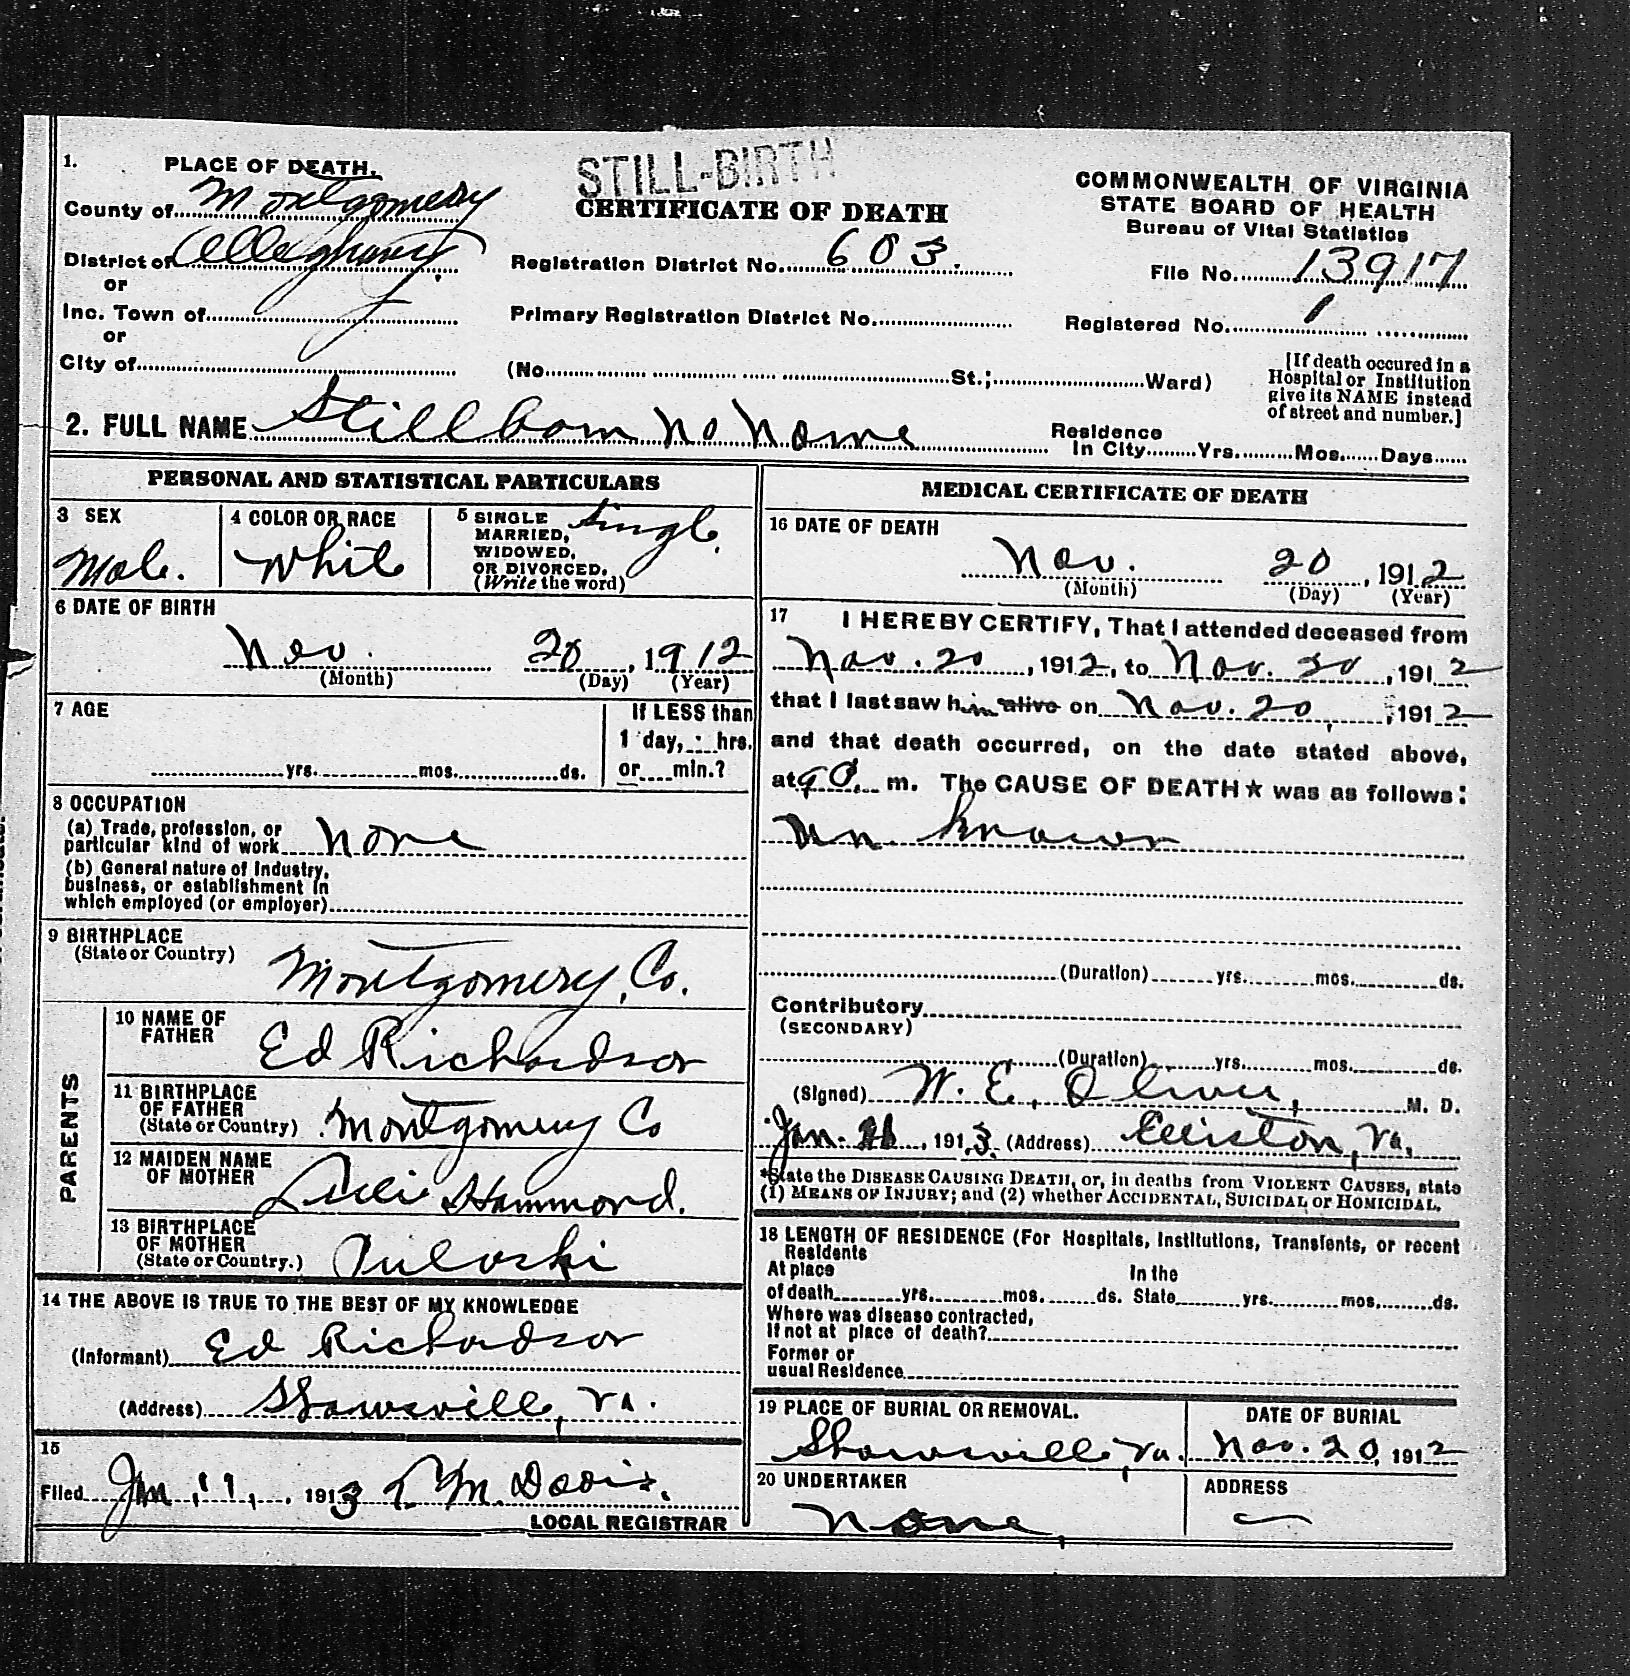 STILL-BIRTH
1. PLACE OF DEATH.
County of Montgomery
District of Alleghany
or
Inc. Town of
or
City of
CERTIFICATE OF DEATH
Registration District No. 603.
Primary Registration District No.
(No. St.; Ward)
COMMONWEALTH OF VIRGINIA
STATE BOARD OF HEALTH
Bureau of Vital Statistics
File No. 13917
Registered No. 1
[If death occured in a
Hospital or Institution
give its NAME instead
of street and number.]
2. FULL NAME Stillborn No Name
Residence
In City Yrs. Mos. Days
PERSONAL AND STATISTICAL PARTICULARS
3 SEX
Male.
4 COLOR OR RACE
White
5 SINGLE
MARRIED,
WIDOWED,
OR DIVORCED.
(Write the word)
Single.
6 DATE OF BIRTH
Nov. 20, 1912
(Month) (Day) (Year)
7 AGE
yrs. mos. ds.
If LESS than
1 day, hrs.
or min.?
8 OCCUPATION
(a) Trade, profession, or
particular kind of work None
(b) General nature of Industry,
business, or establishment in
which employed (or employer)
9 BIRTHPLACE
(State or Country)
Montgomery, Co.
PARENTS
10 NAME OF
FATHER
Ed Richardson
11 BIRTHPLACE
OF FATHER
(State or Country)
Montgomery Co
12 MAIDEN NAME
OF MOTHER
Hammond.
13 BIRTHPLACE
OF MOTHER
(State or Country.)
Puloski
14 THE ABOVE IS TRUE TO THE BEST OF MY KNOWLEDGE
(Informant) Ed Richardson
(Address) Shawsville, Va.
15
Filed Jan, 11, 1913 M. Davis.
LOCAL REGISTRAR
MEDICAL CERTIFICATE OF DEATH
16 DATE OF DEATH
Nov. 20, 1912
(Month) (Day) (Year)
17 I HEREBY CERTIFY, That I attended deceased from
Nov. 20, 1912, to Nov. 20, 1912
that I last saw him alive on Nov. 20, 1912
and that death occurred, on the date stated above,
at 9 P. m. The CAUSE OF DEATH★ was as follows:
Un known
(Duration) yrs. mos. ds.
Contributory
(SECONDARY)
(Duration) yrs. mos. ds.
(Signed) W. E. Oliver, M. D.
Jan. 1913. (Address) Elliston, Va.
*State the DISEASE CAUSING DEATH, or, in deaths from VIOLENT CAUSES, state
(1) MEANS OF INJURY; and (2) whether ACCIDENTAL, SUICIDAL or HOMICIDAL.
18 LENGTH OF RESIDENCE (For Hospitals, Institutions, Transients, or recent
Residents
At place In the
of death yrs. mos. ds. State yrs. mos. ds.
Where was disease contracted,
If not at place of death?
Former or
usual Residence
19 PLACE OF BURIAL OR REMOVAL.
Shawsville, Va.
DATE OF BURIAL
Nov. 20, 1912
20 UNDERTAKER
None,
ADDRESS